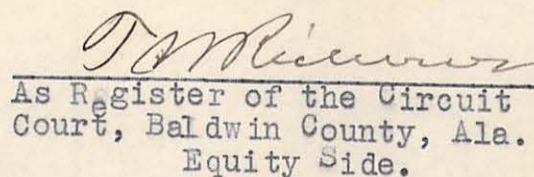 As Register of the Circuit
Court, Baldwin County, Ala.
Equity Side.